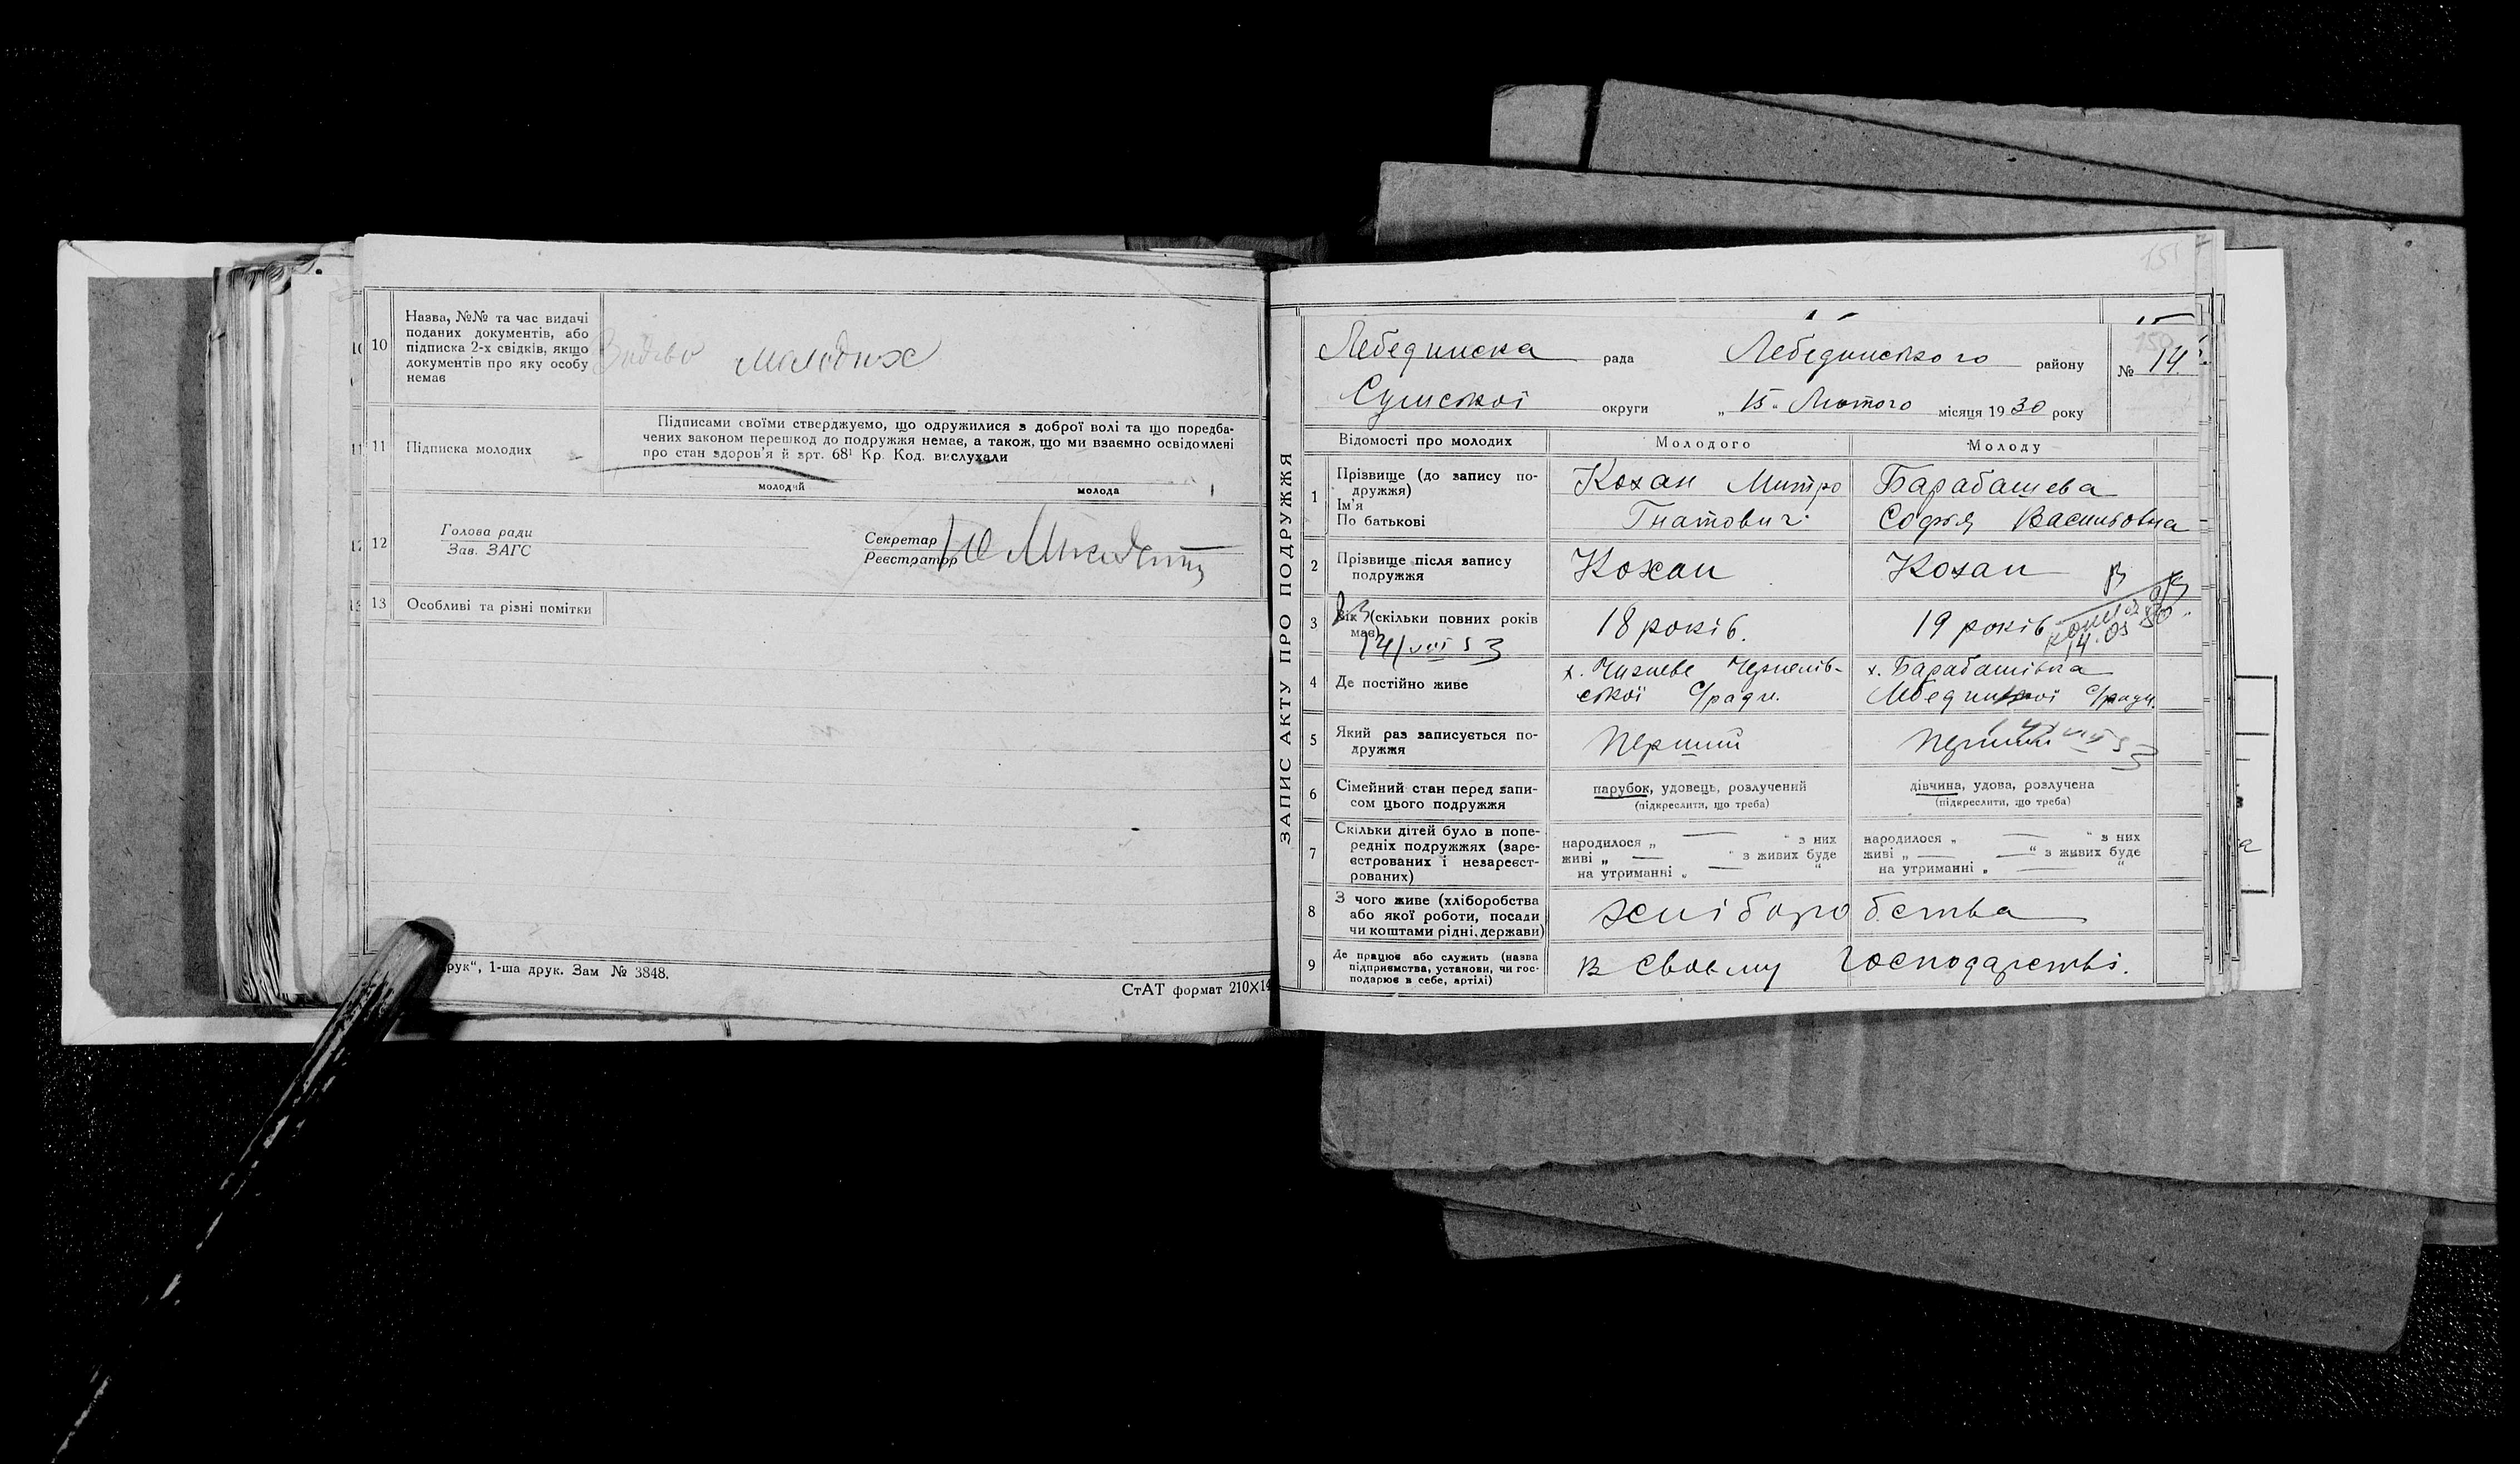 10 Назва, №№ та час видачі
поданих документів, або
підписка 2-х свідків, якщо
документів про яку особу
немає
молодих
11 Підписка молодих
Підписами своїми стверджуємо, що одружилися з доброї волі та що поредба-
чених законом перешкод до подружжя немає, а також, що ми взаємно освідомлені
про стан здоров'я й врт. 68¹ Кр. Код. вислухали
молодий молода
12 Голова ради
Зав. ЗАГС
Секретар
Реєстратор
13 Особливі та різні помітки
рук“, 1-ша друк. Зам № 3848.
СтАТ формат 210×14
151
150
ЗАПИС АКТУ ПРО ПОДРУЖЖЯ
Лебединська рада Лебединського району № 14
Сумської округи „15“ Лютого місяця 1930 року
Відомості про молодих Молодого Молоду
1 Прізвище (до запису по-
дружжя)
Ім'я
По батькові
Кохан Митро
Гнатович
Барабашева
Софія Васильовна
2 Прізвище після запису
подружжя
Кохан
Кохан
3 Вік (скільки повних років
має)
14/VIII 53
18 років.
19 років
14.03 80
4 Де постійно живе
х. Чижеве
ської с/ради.
х. Барабашівка
Лебединської с/ради.
5 Який раз записується по-
дружжя
Перший
Перший
6 Сімейний стан перед запи-
сом цього подружжя
парубок, удовець, розлучений
(підкреслити, що треба)
дівчина, удова, розлучена
(підкреслити, що треба)
7 Скільки дітей було в попе-
редніх подружжях (заре-
єстрованих і незареєст-
рованих)
народилося „ — “ з них
живі „ — “ з живих буде
на утриманні „ — “
народилося „ — “ з них
живі „ — “ з живих буде
на утриманні „ — “
8 З чого живе (хліборобства
або якої роботи, посади
чи коштами рідні, держави)
хліборобства
9 Де працює або служить (назва
підприємства, установи, чи гос-
подарює в себе, артілі)
в своєму господарстві.